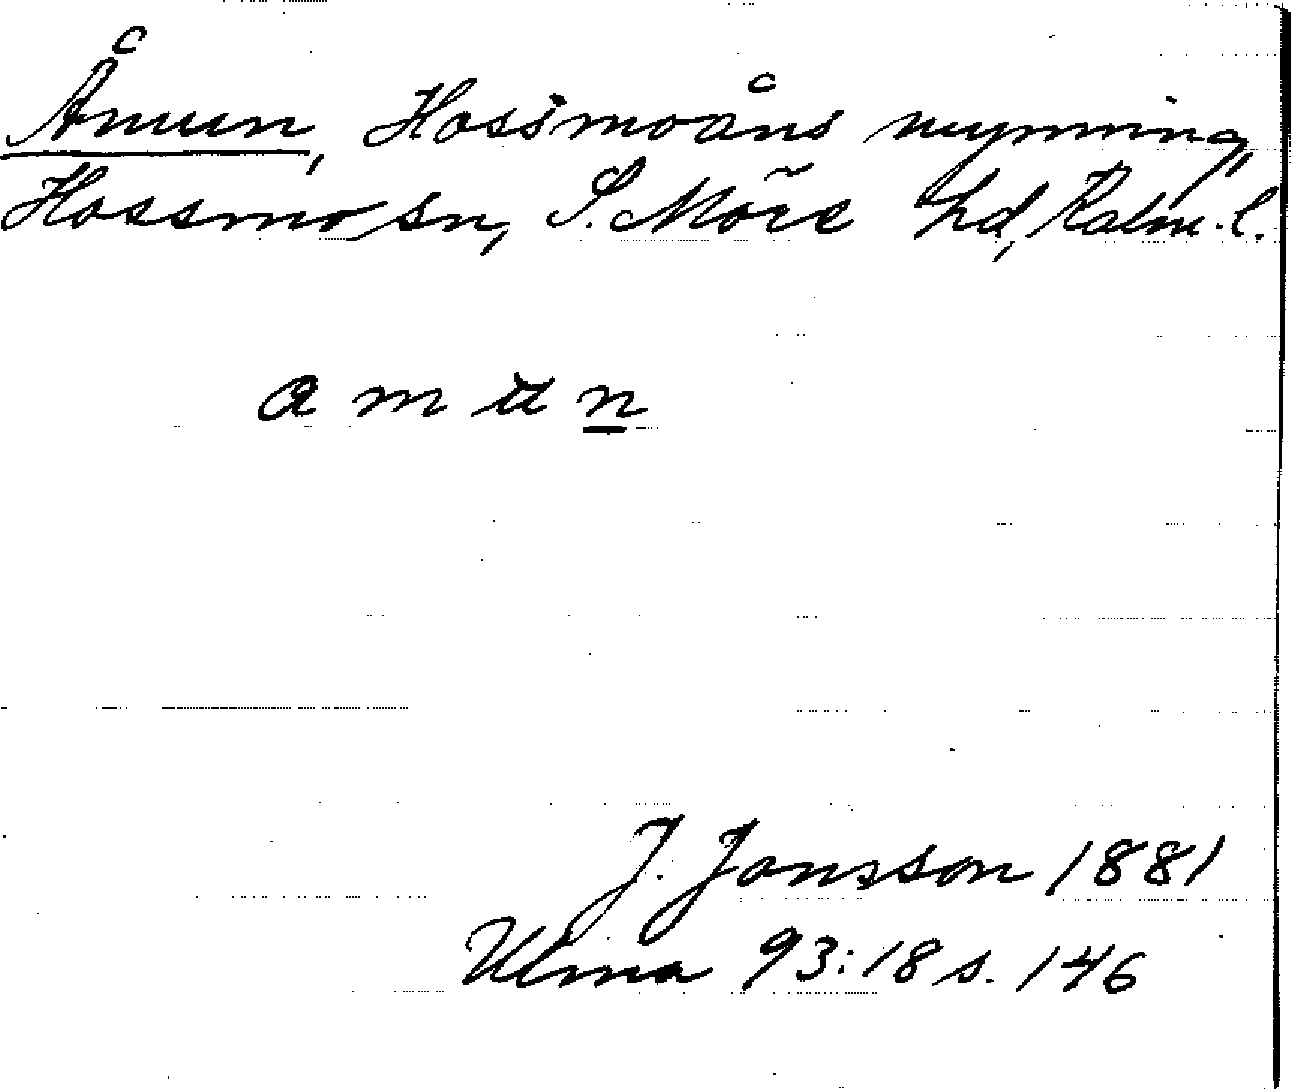 Åmun, Hossmoåns mynning,
Hossmo sn, S. Möre hd, Kalm. l.
a m u n
J. Jonsson 1881
Ulma 93:18 s. 146